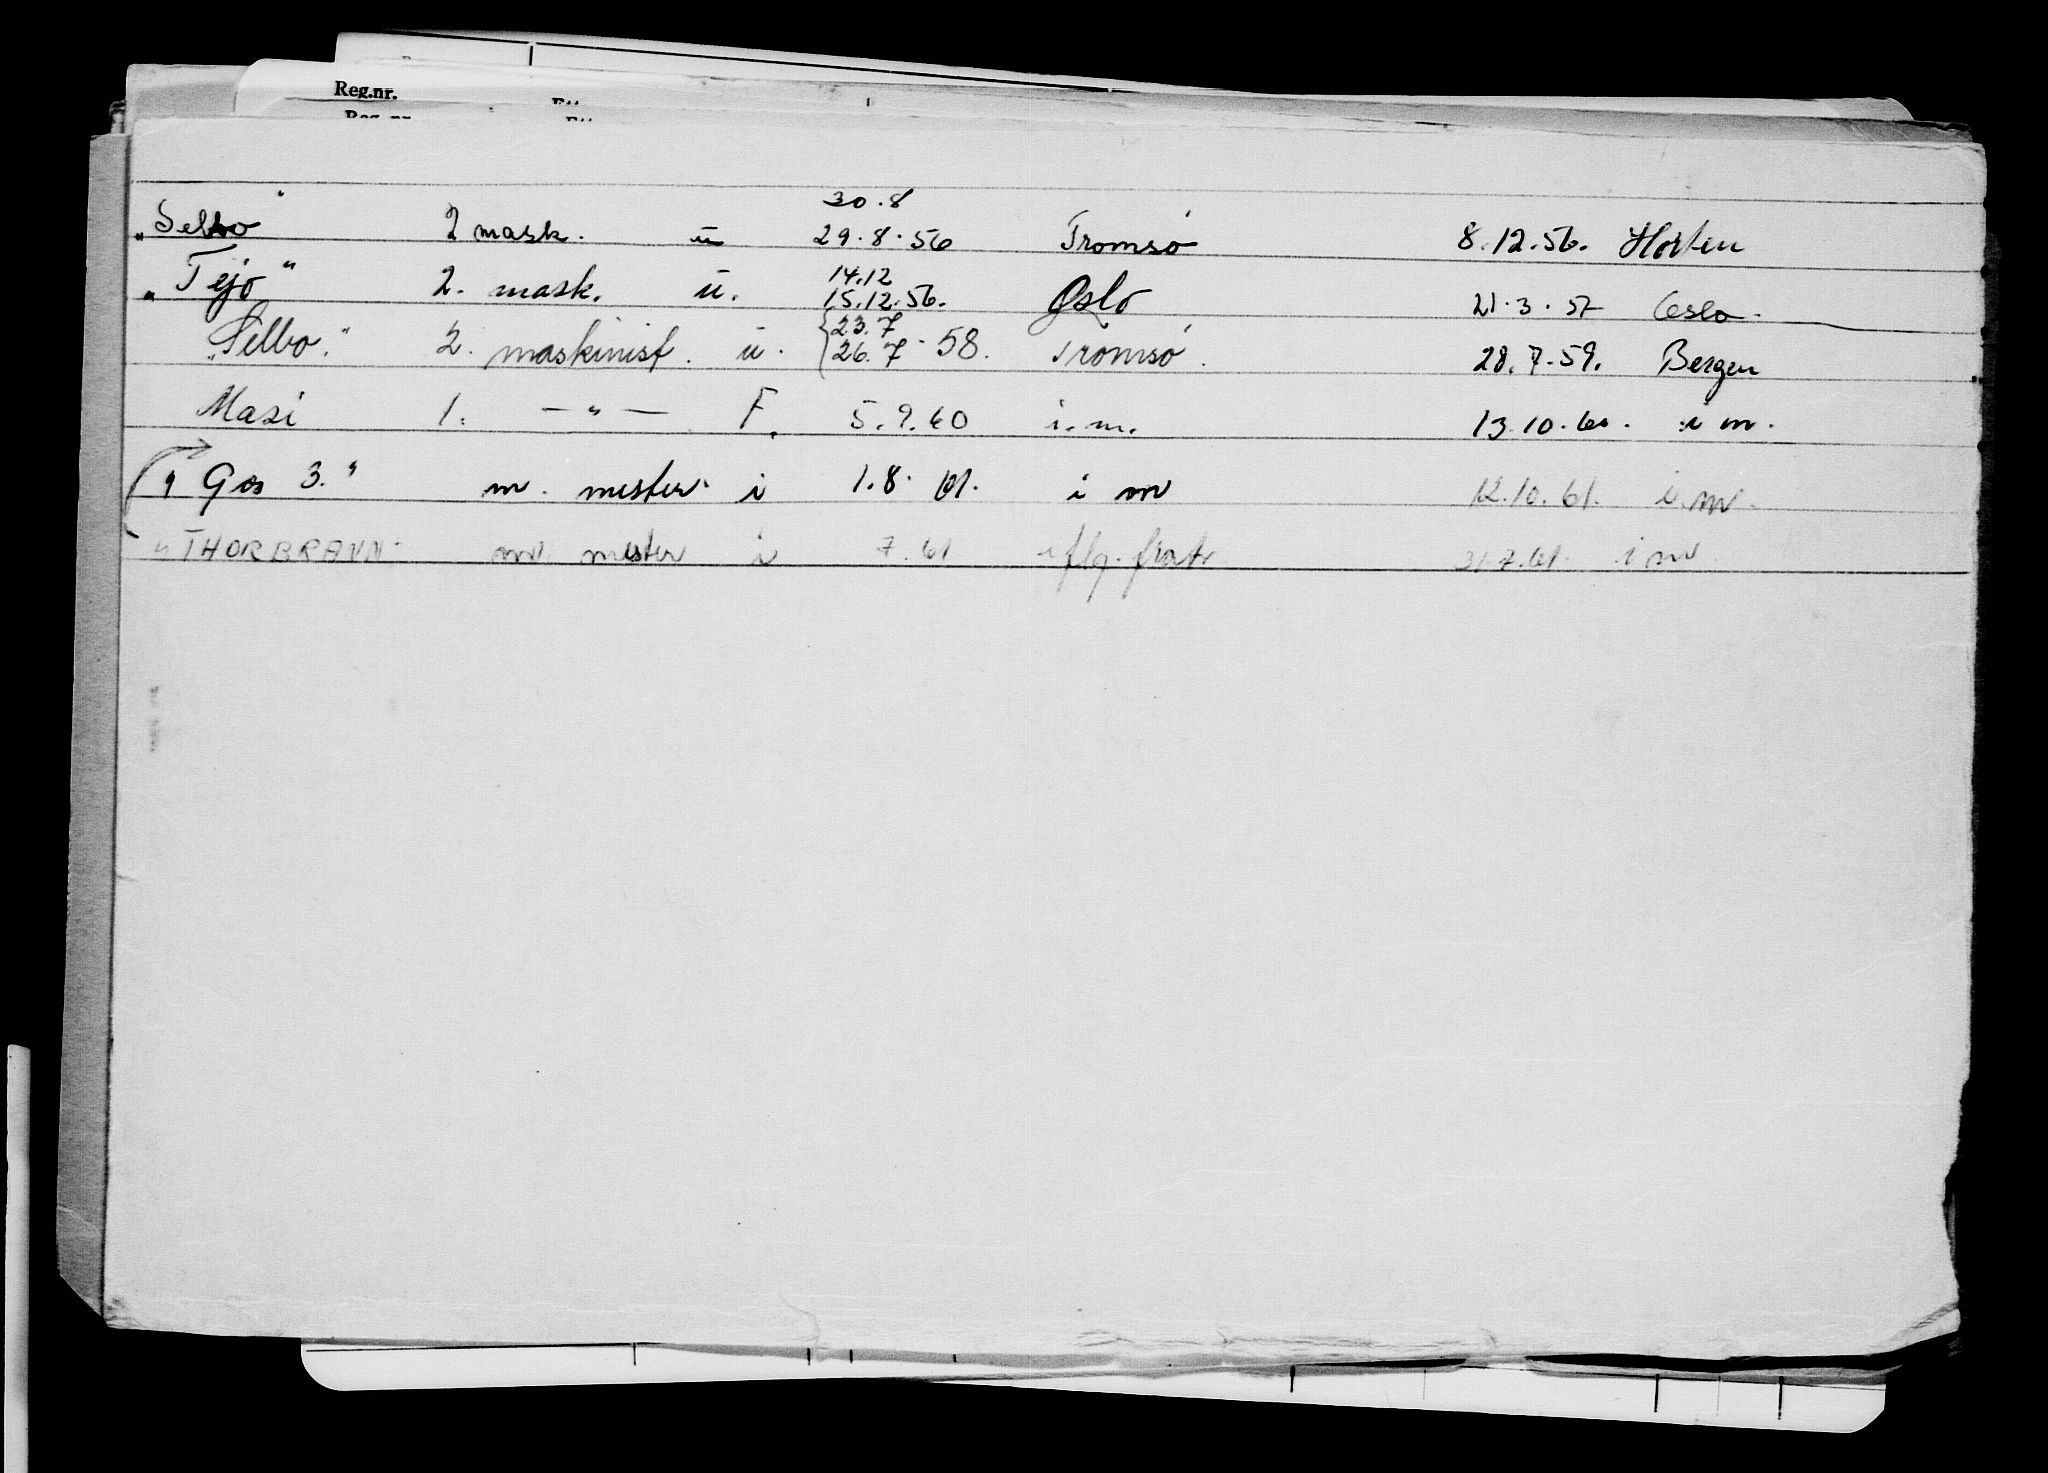 Reg.nr.
Reg.nr.
30.8
"Selbo" 2 mask. u 29.8.56 Tromsø 8.12.56. Horten
14.12
"Tejo" 2. mask. u. 15.12.56. Oslo 21.3.57 Oslo.
23.7
"Selbo." 2. maskinist. u. 26.7.58. Tromsø. 28.7.59. Bergen
Masi 1. —"— F. 5.9.60 i.m. 13.10.60. i m.
"Gos 3." m. mester i 1.8.61. i m 12.10.61. i m.
"THORBRANN" m. mester i 7.61 i flg. frakt 31.7.61. i m